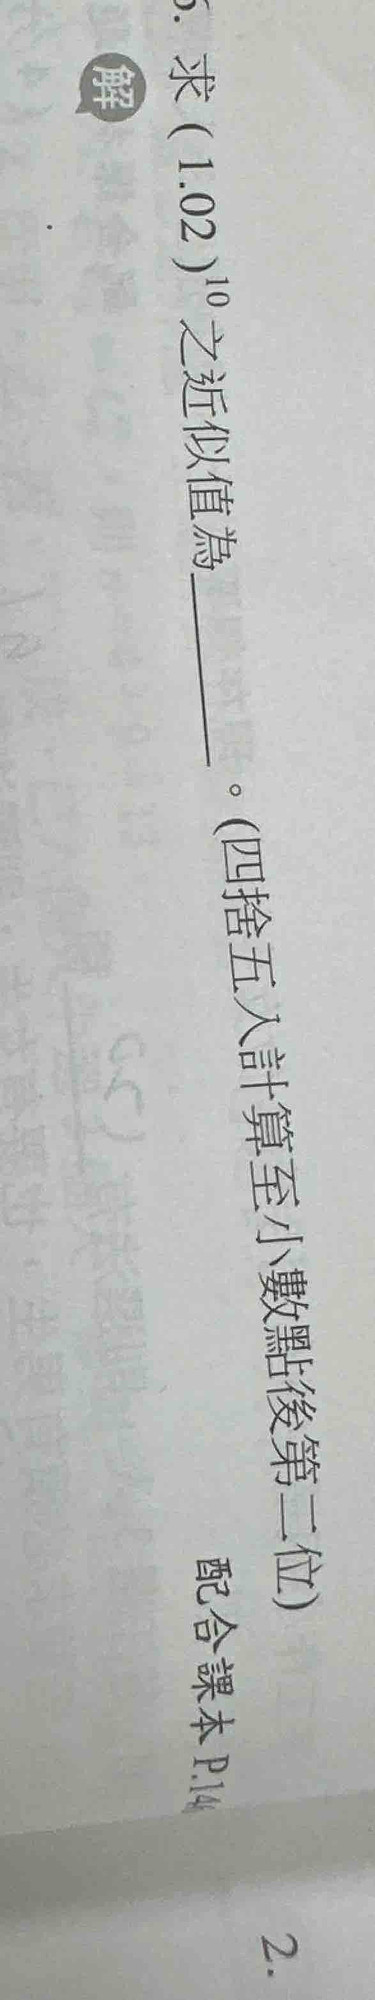 求(1.02)¹⁰之近似值為______。(四捨五入計算至小數點後第二位)
配合課本 P.14
解
2.